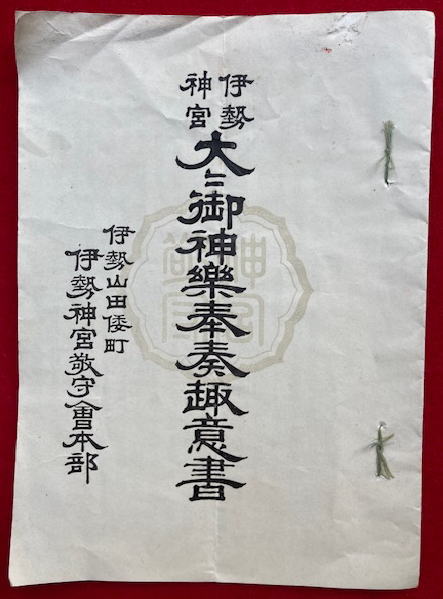 伊勢
神宮
大〻御神樂奉奏趣意書
伊勢山田倭町
伊勢神宮敬守會本部